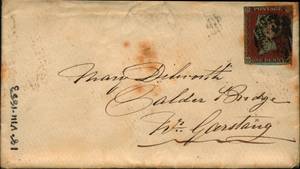 POSTAGE
ONE PENNY
Mary Dilworth
Calder Bridge
Nr. Garstang
18·VIII·1853